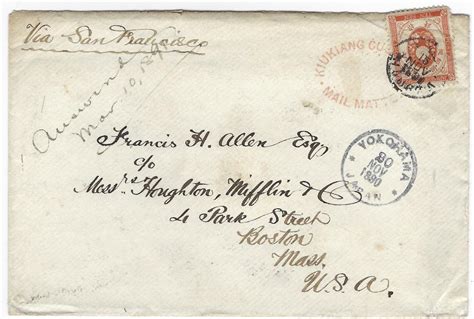 Via San Francisco
Answered
Mar 10, 1891
KIUKIANG CUS
MAIL MATT
NOV
Francis H. Allen Esqr
c/o
Messrs Houghton, Mifflin & Co
4 Park Street
Boston
Mass.
U.S.A.
YOKOHAMA
30
NOV
1890
JAPAN